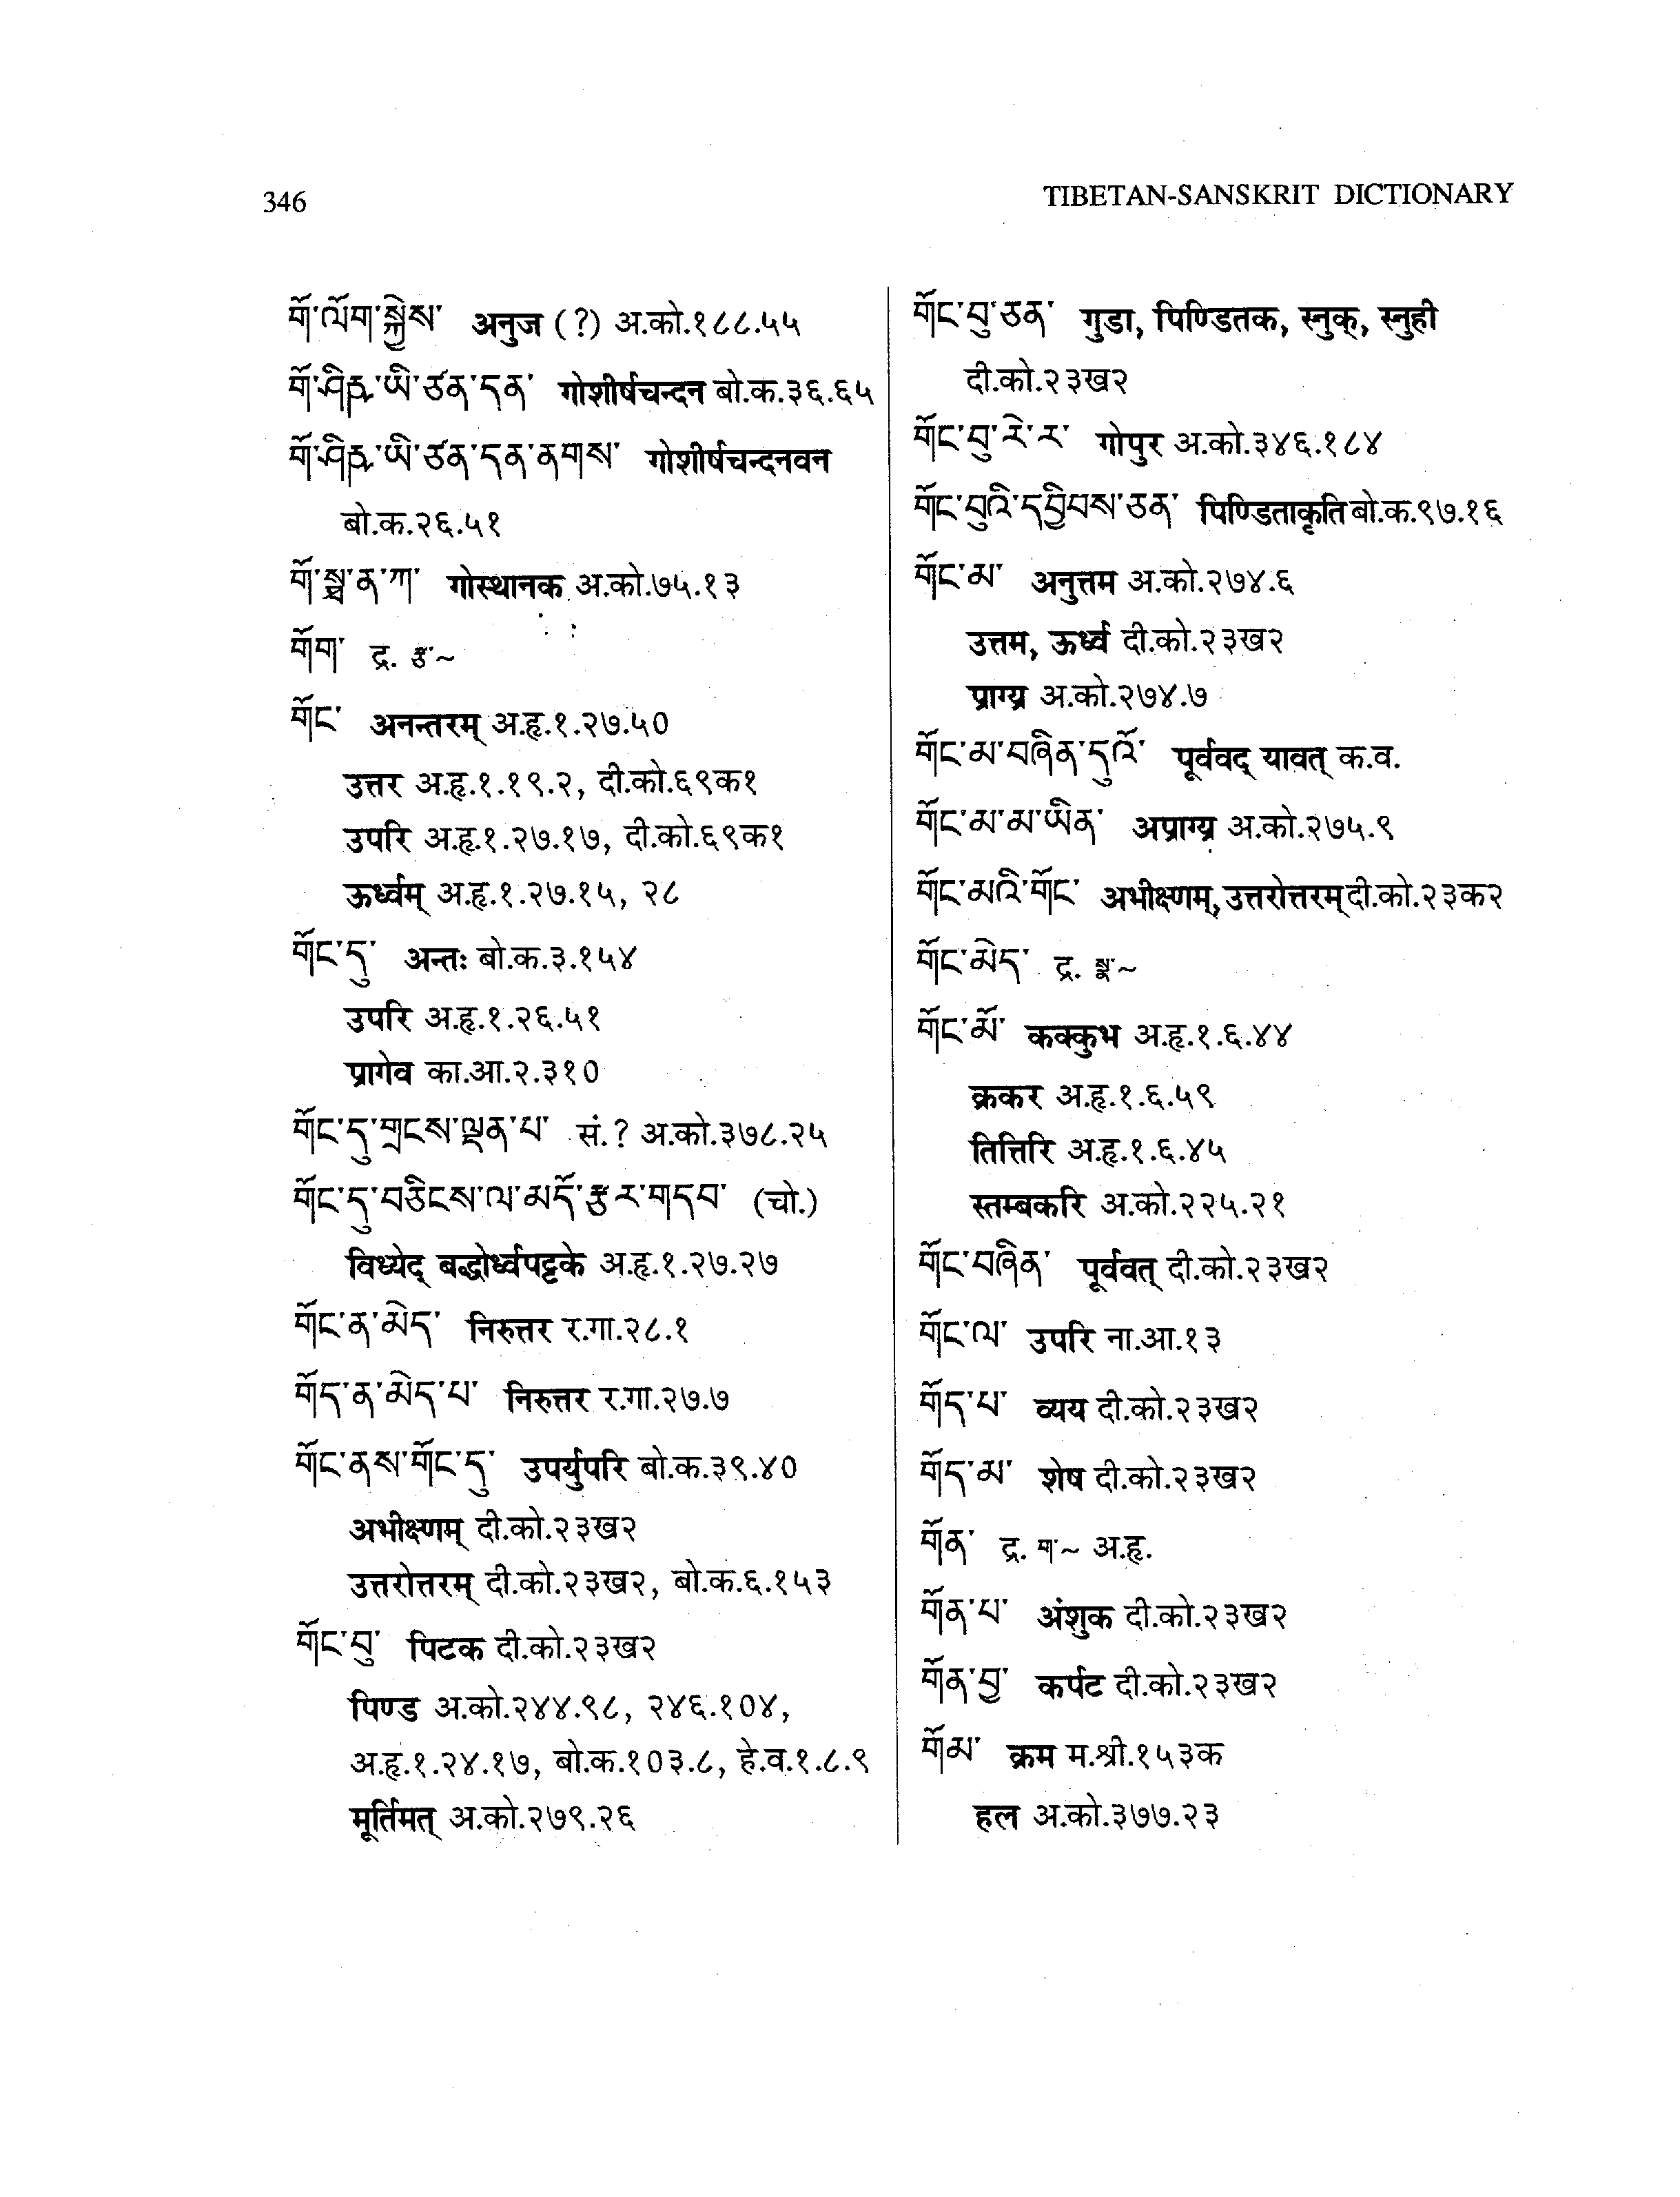 346
TIBETAN-SANSKRIT DICTIONARY
གོ་ལོག་སྐྱེས་ अनुज (?) अ.को.१८८.५५
གོ་ཤིརྵ་ཡི་ཙན་དན་ गोशीर्षचन्दन बो.क.३६.६५
གོ་ཤིརྵ་ཡི་ཙན་དན་ནགས་ गोशीर्षचन्दनवन
बो.क.२६.५१
གོ་སྠ་ན་ཀ་ गोस्थानक अ.को.७५.१३
གོག་ द्र. ~
གོང་ अनन्तरम् अ.हृ.१.२७.५०
उत्तर अ.हृ.१.१९.२, दी.को.६९क१
उपरि अ.हृ.१.२७.१७, दी.को.६९क१
ऊर्ध्वम् अ.हृ.१.२७.१५, २८
གོང་དུ་ अन्तः बो.क.३.१५४
उपरि अ.हृ.१.२६.५१
प्रागेव का.आ.२.३१०
གོང་དུ་གྲངས་ལྡན་པ་ सं.? अ.को.३७८.२५
གོང་དུ་བཅིངས་ལ་མདོ་རྩར་གདབ་ (चो.)
विध्येद् बद्धोर्ध्वपट्टके अ.हृ.१.२७.२७
གོང་ན་མེད་ निरुत्तर र.गा.२८.१
གོད་ན་མེད་པ་ निरुत्तर र.गा.२७.७
གོང་ནས་གོང་དུ་ उपर्युपरि बो.क.३९.४०
अभीक्ष्णम् दी.को.२३ख२
उत्तरोत्तरम् दी.को.२३ख२, बो.क.६.१५३
གོང་བུ་ पिटक दी.को.२३ख२
पिण्ड अ.को.२४४.९८, २४६.१०४,
अ.हृ.१.२४.१७, बो.क.१०३.८, हे.व.१.८.९
मूर्तिमत् अ.को.२७९.२६
གོང་བུ་ཅན་ गुडा, पिण्डितक, स्नुक्, स्नुही
दी.को.२३ख२
གོང་བུ་རེ་ར་ गोपुर अ.को.३४६.१८४
གོང་བུའི་དབྱིབས་ཅན་ पिण्डिताकृति बो.क.९७.१६
གོང་མ་ अनुत्तम अ.को.२७४.६
उत्तम, ऊर्ध्व दी.को.२३ख२
प्राग्र्य अ.को.२७४.७
གོང་མ་བཞིན་དུའོ་ पूर्ववद् यावत् क.व.
གོང་མ་མ་ཡིན་ अप्राग्र्य अ.को.२७५.९
གོང་མའི་གོང་ अभीक्ष्णम्, उत्तरोत्तरम् दी.को.२३क२
གོང་མེད་ द्र. ~
གོང་མོ་ कक्कुभ अ.हृ.१.६.४४
क्रकर अ.हृ.१.६.५९
तित्तिरि अ.हृ.१.६.४५
स्तम्बकरि अ.को.२२५.२१
གོང་བཞིན་ पूर्ववत् दी.को.२३ख२
གོང་ལ་ उपरि ना.आ.१३
གོད་པ་ व्यय दी.को.२३ख२
གོད་མ་ शेष दी.को.२३ख२
གོན་ द्र. ག་~ अ.हृ.
གོན་པ་ अंशुक दी.को.२३ख२
གོན་བྱ་ कर्पट दी.को.२३ख२
གོམ་ क्रम म.श्री.१५३क
हल अ.को.३७७.२३